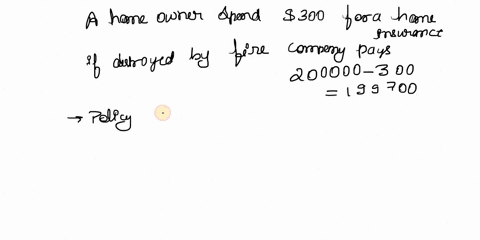 A home owner spend $300 for a home
insurance
if destroyed by fire company pays
200000-300
=199700
→ Policy